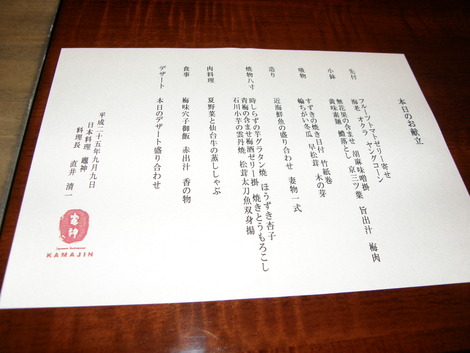 本日のお献立
先付
フルーツトマトゼリー寄せ
海老 オクラ ヤングコーン 旨出汁 梅肉
小鉢
無花果の含ませ 胡麻味噌掛 京三ツ葉
黄味素麺 鱧落とし
吸物
すずきの焼き目付 竹紙巻
輪ちがい冬瓜 早松茸 木の芽
造り
近海鮮魚の盛り合わせ 妻物一式
焼物八寸
時しらずの芋グラタン焼 ほうずき杏子
青梅の含ませ梅酒ゼリー掛 焼きとうもろこし
石川小芋の雲丹焼 松茸太刀魚双身揚
肉料理
夏野菜と仙台牛の蒸ししゃぶ
食事
梅味穴子御飯 赤出汁 香の物
デザート
本日のデザート盛り合わせ
平成二十五年九月九日
日本料理 竈神
料理長 直井 清一
竈神
Japanese Restaurant
KAMAJIN